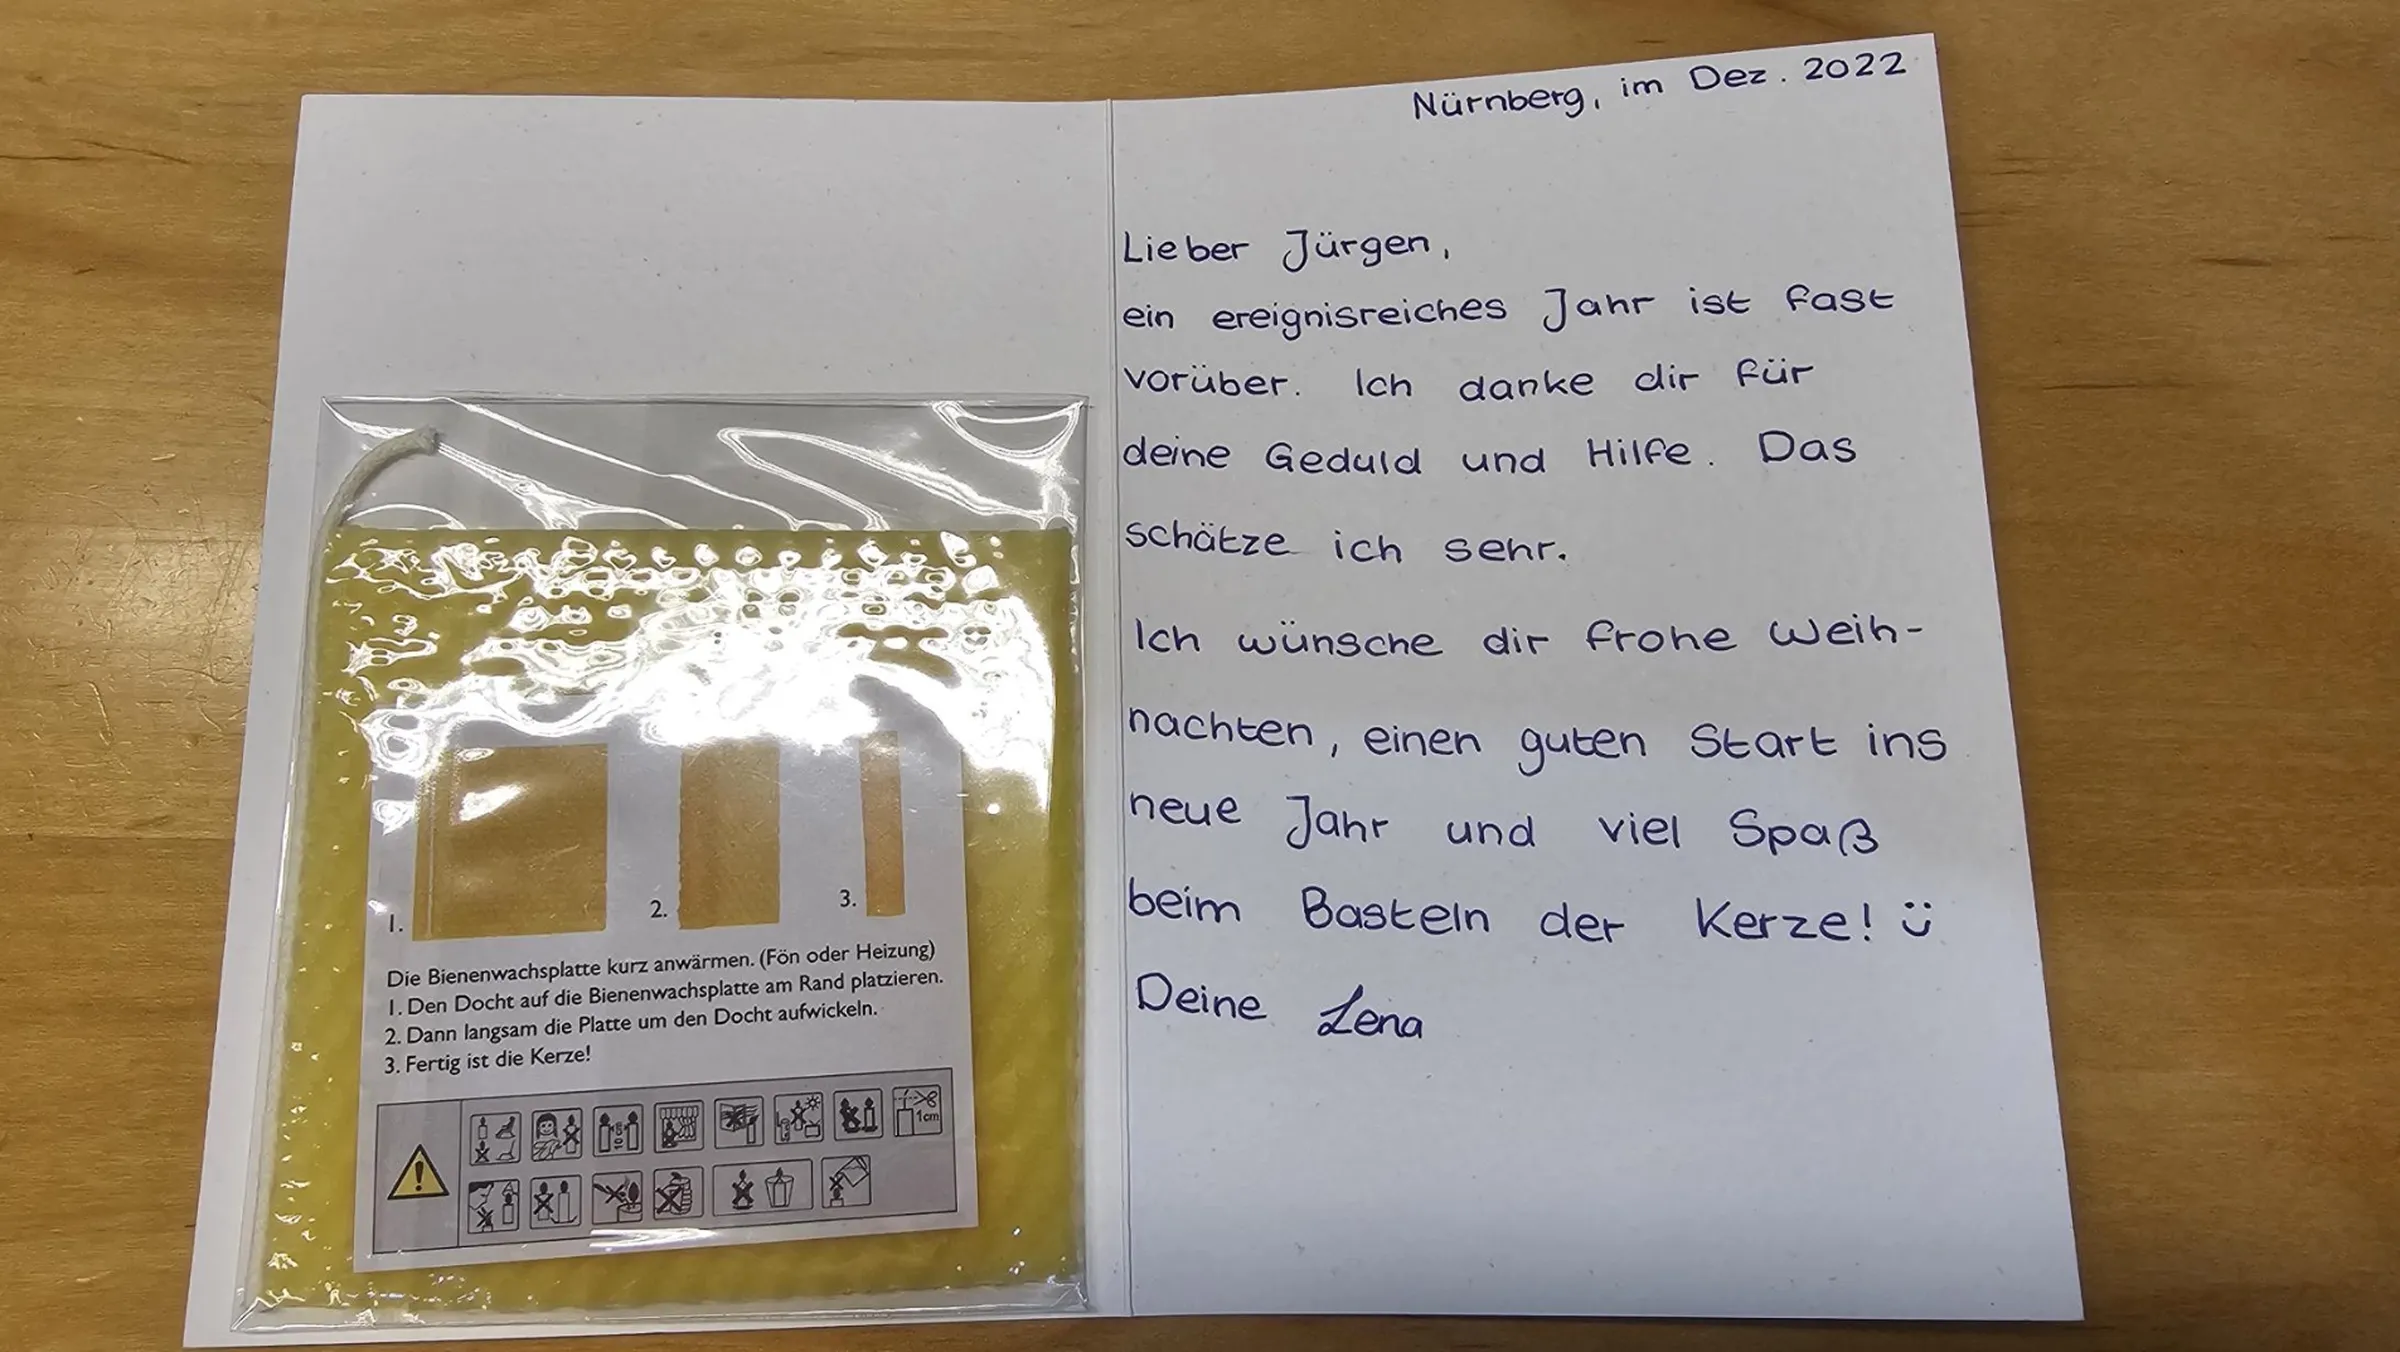 1.
2.
3.
Die Bienenwachsplatte kurz anwärmen. (Fön oder Heizung)
1. Den Docht auf die Bienenwachsplatte am Rand platzieren.
2. Dann langsam die Platte um den Docht aufwickeln.
3. Fertig ist die Kerze!
10cm
1cm
Nürnberg, im Dez. 2022
Lieber Jürgen,
ein ereignisreiches Jahr ist fast
vorüber. Ich danke dir für
deine Geduld und Hilfe. Das
schätze ich sehr.
Ich wünsche dir frohe Weih-
nachten, einen guten Start ins
neue Jahr und viel Spaß
beim Basteln der Kerze! Ü
Deine Lena